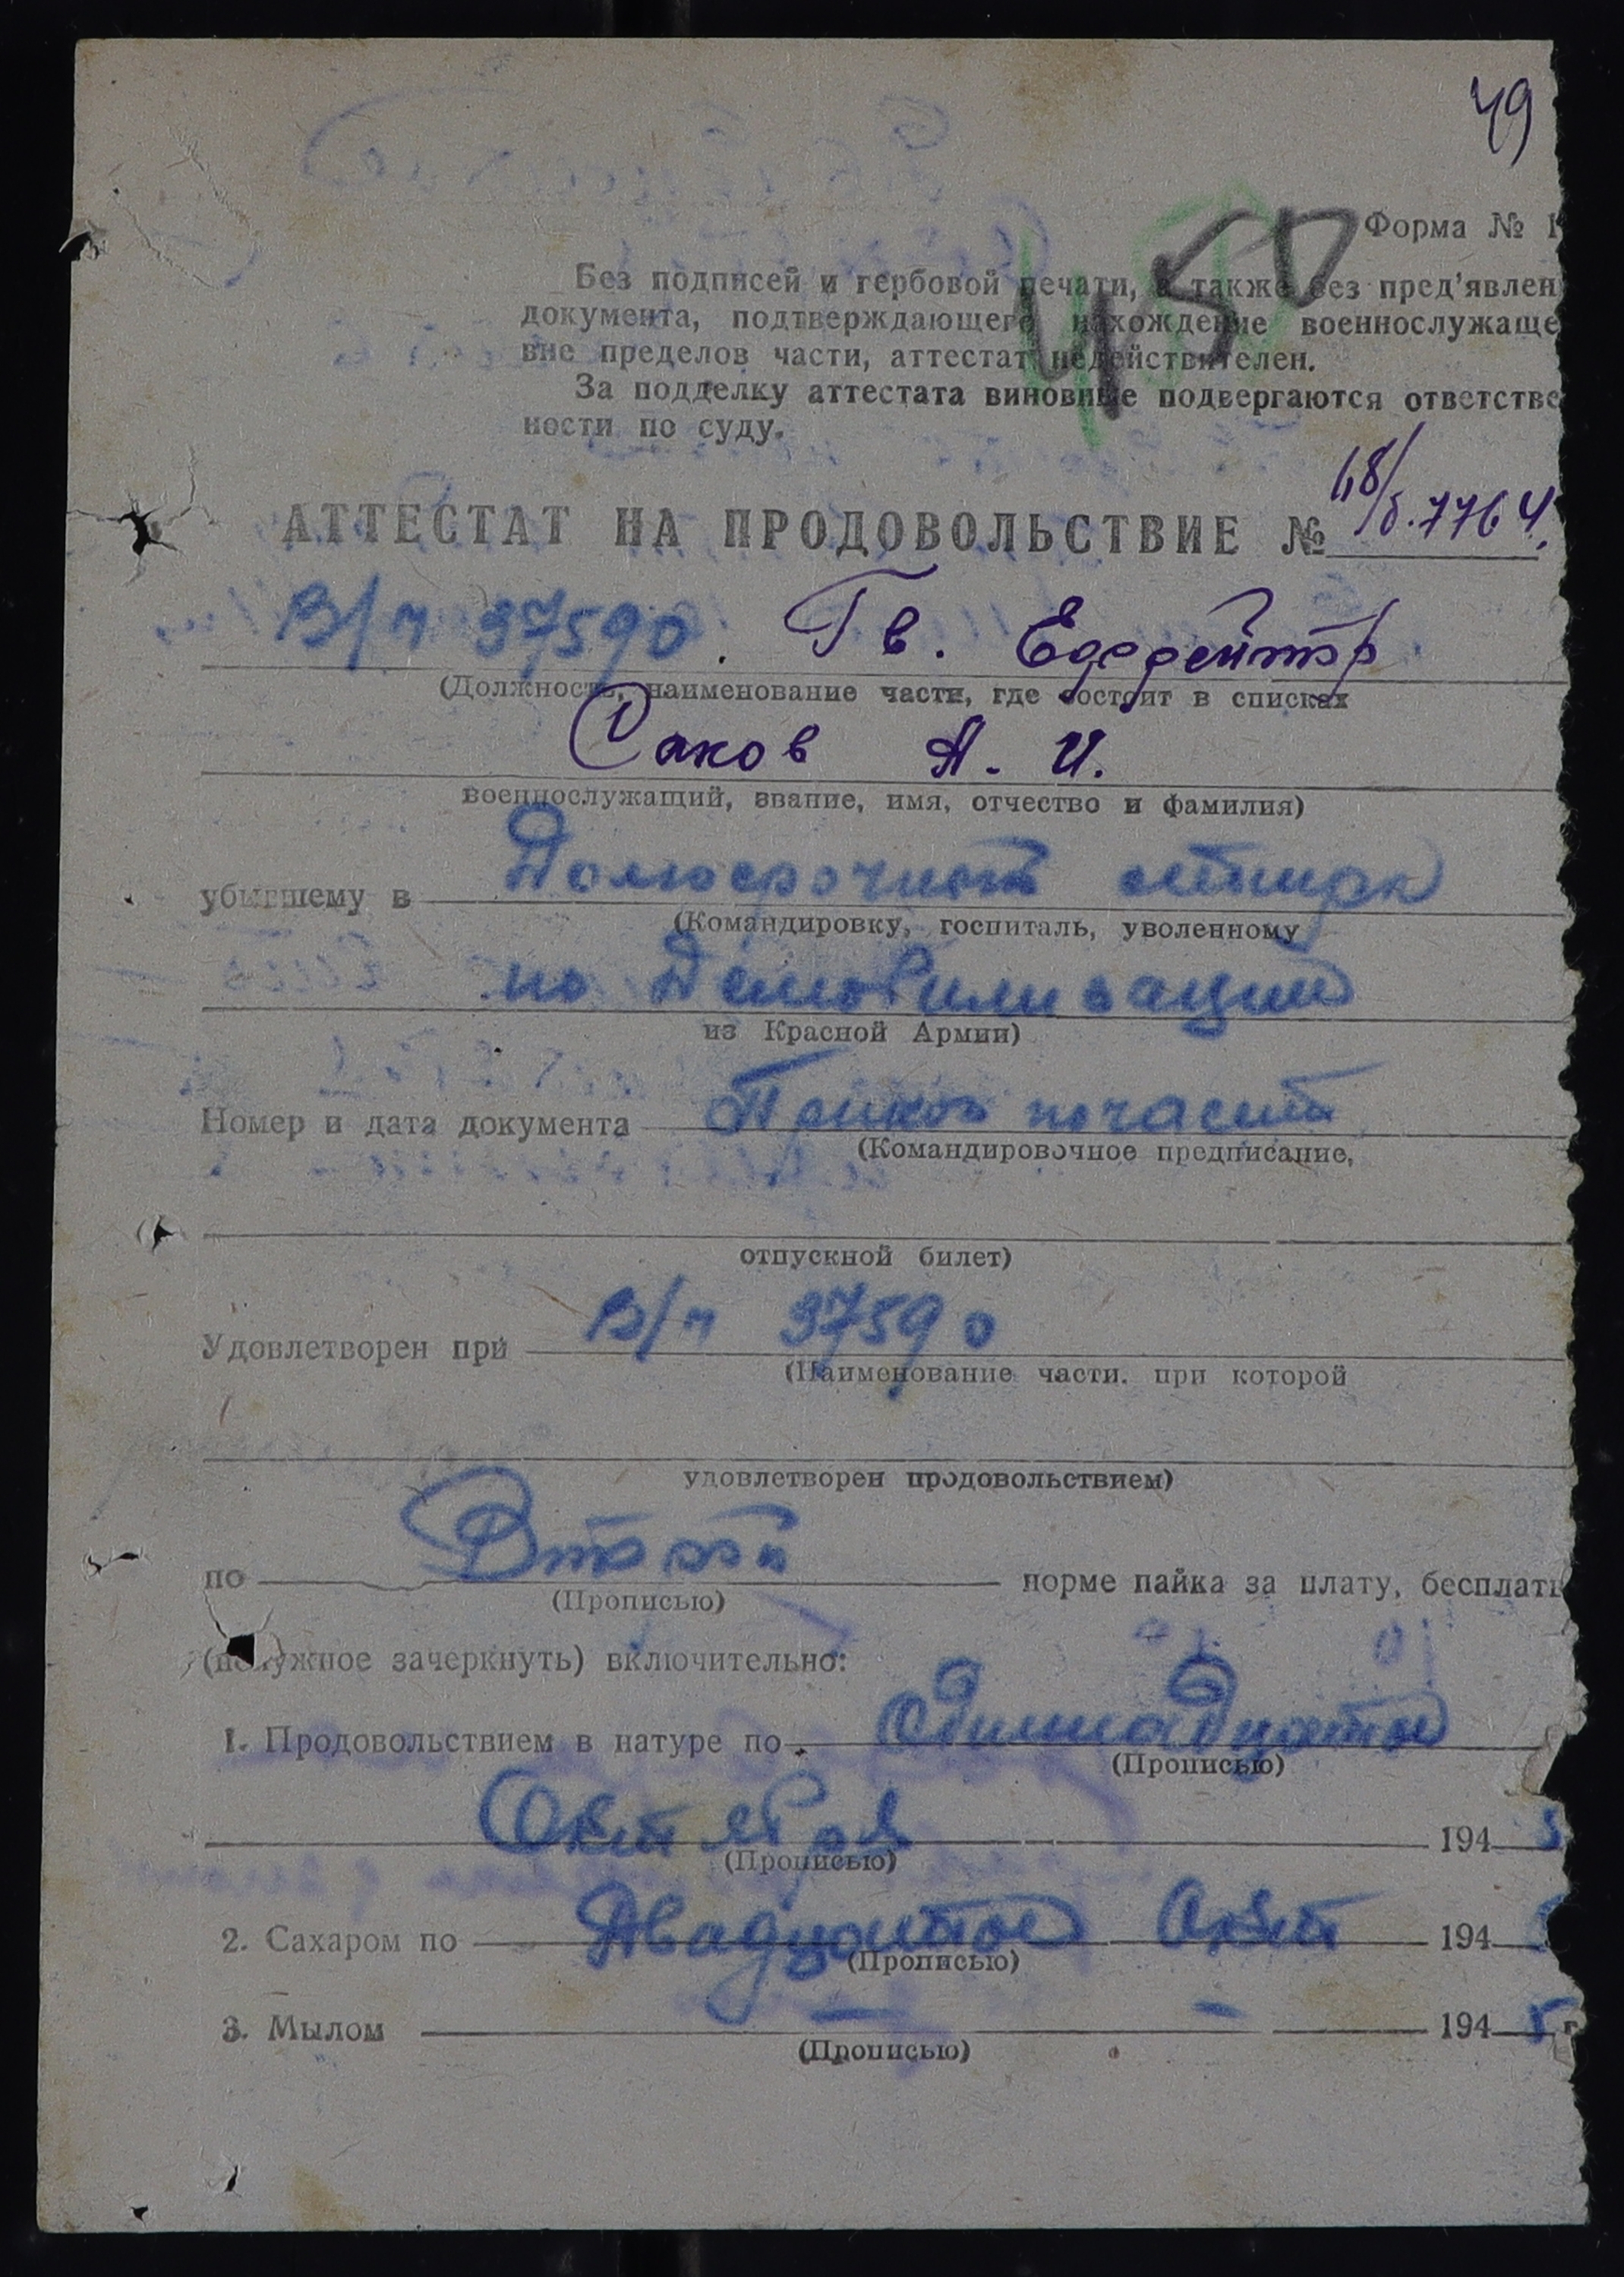 49
Форма № 1
450
Без подписей и гербовой печати, а также без пред'явлен
документа, подтверждающего нахождение военнослужаще
вне пределов части, аттестат недействителен.
За подделку аттестата виновные подвергаются ответстве
ности по суду.
АТТЕСТАТ НА ПРОДОВОЛЬСТВИЕ №
В/ч 37590. Гв. Ефрейтор
(Должность, наименование части, где состоит в списках
Саков А. И.
военнослужащий, звание, имя, отчество и фамилия)
убывшему в Долгосрочный отпуск
(Командировку, госпиталь, уволенному
по Демобилизации
из Красной Армии)
Номер и дата документа Приказ по части
(Командировочное предписание,
отпускной билет)
Удовлетворен при В/ч 37590
(Наименование части. при которой
удовлетворен продовольствием)
по Второй норме пайка за плату, бесплат
(Прописью)
(ненужное зачеркнуть) включительно:
1. Продовольствием в натуре по Одиннадцатое
(Прописью)
Октября 1945
(Прописью)
2. Сахаром по Двадцатое Окт 194
(Прописью)
3. Мылом — — 1945 г
(Прописью)